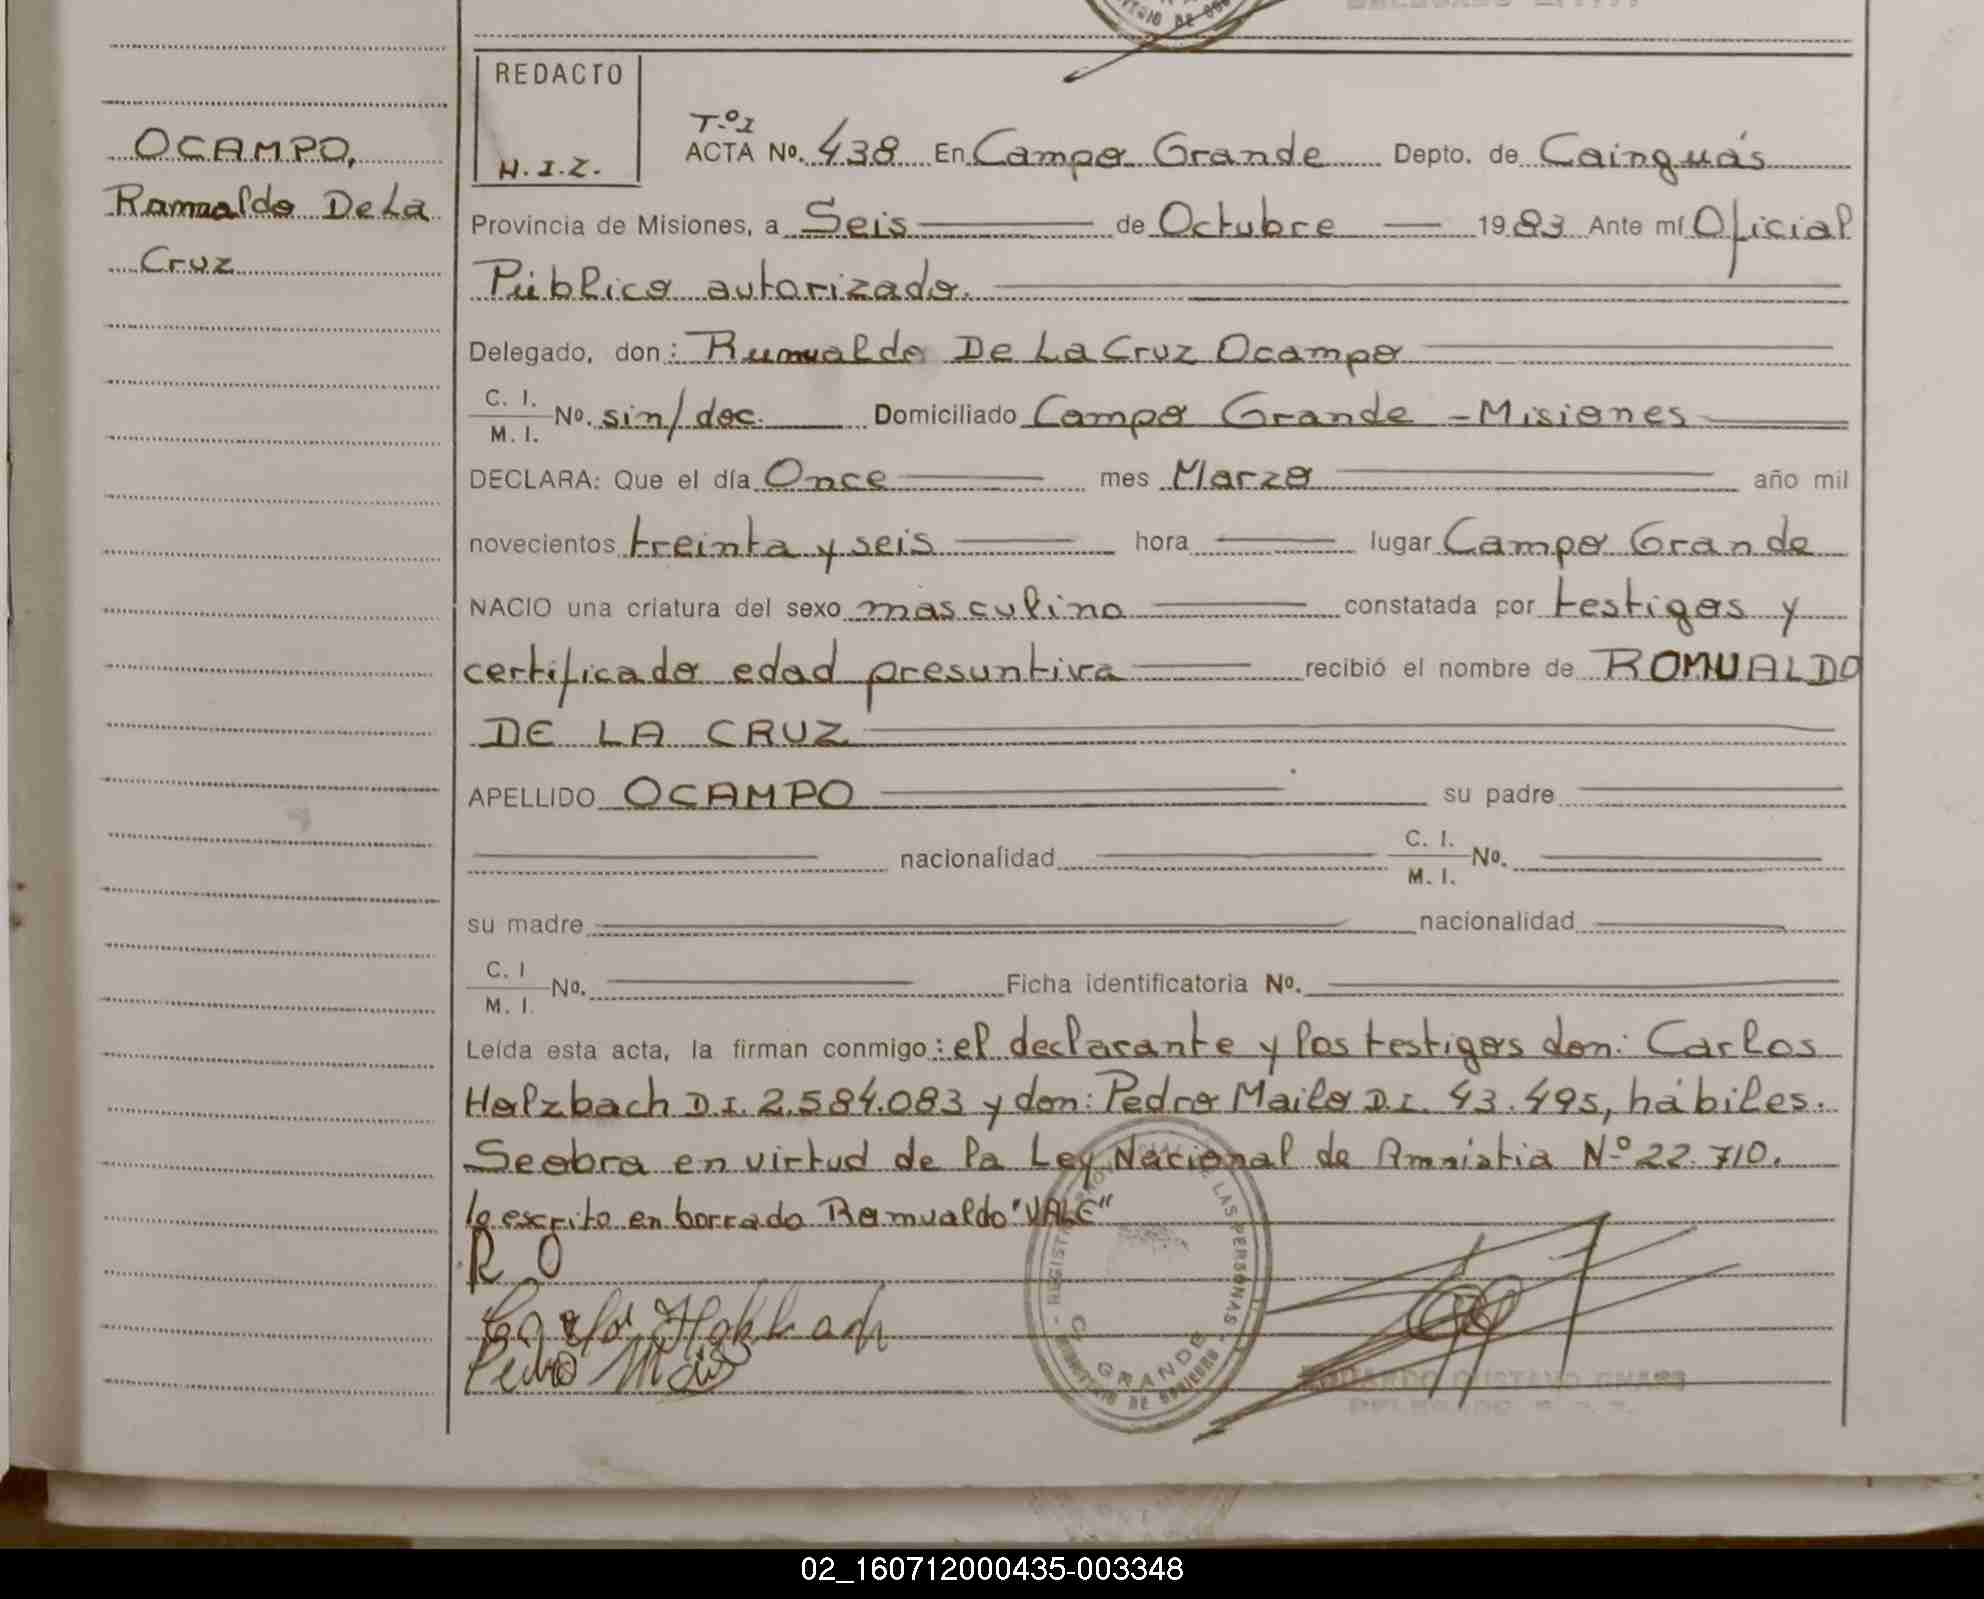 OCAMPO,
Romualdo De La
Cruz
REDACTO
H.I.Z.
Tº I
ACTA Nº. 438 En Campo Grande Depto. de Cainguás
Provincia de Misiones, a Seis de Octubre 1983 Ante mí Oficial
Público autorizado.
Delegado, don: Rumualdo De La Cruz Ocampo
C. I.
M. I. Nº. sin/doc. Domiciliado Campo Grande - Misiones
DECLARA: Que el día Once mes Marzo año mil
novecientos treinta y seis hora lugar Campo Grande
NACIO una criatura del sexo masculino constatada por testigos y
certificado edad presuntiva recibió el nombre de ROMUALDO
DE LA CRUZ
APELLIDO OCAMPO su padre
nacionalidad C. I.
M. I. Nº.
su madre nacionalidad
C. I
M. I. Nº. Ficha identificatoria Nº.
Leída esta acta, la firman conmigo: el declarante y los testigos don: Carlos
Holzbach D.I. 2.584.083 y don: Pedro Mailo D.I. 43.495, hábiles.
Se obra en virtud de la Ley Nacional de Amnistia Nº 22.710.
lo escrito en borrado Romualdo "VALE"
R O
Carlos Holzbach
Pedro
LAS PERSONAS
GRANDE
02_160712000435-003348